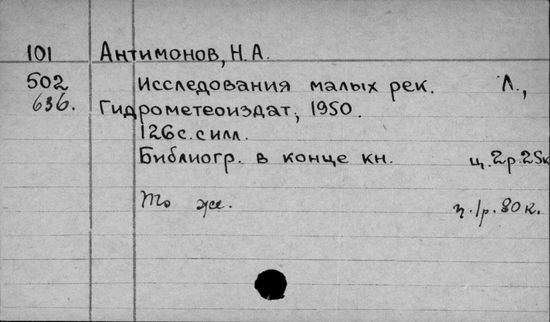 101 Антимонов, Н.А.
502 Исследования малых рек. Л.,
636. Гидрометеоиздат, 1950.
126 с. с илл.
Библиогр. в конце кн. ц. 2р. 25к
То же. ц. 1р. 80к.